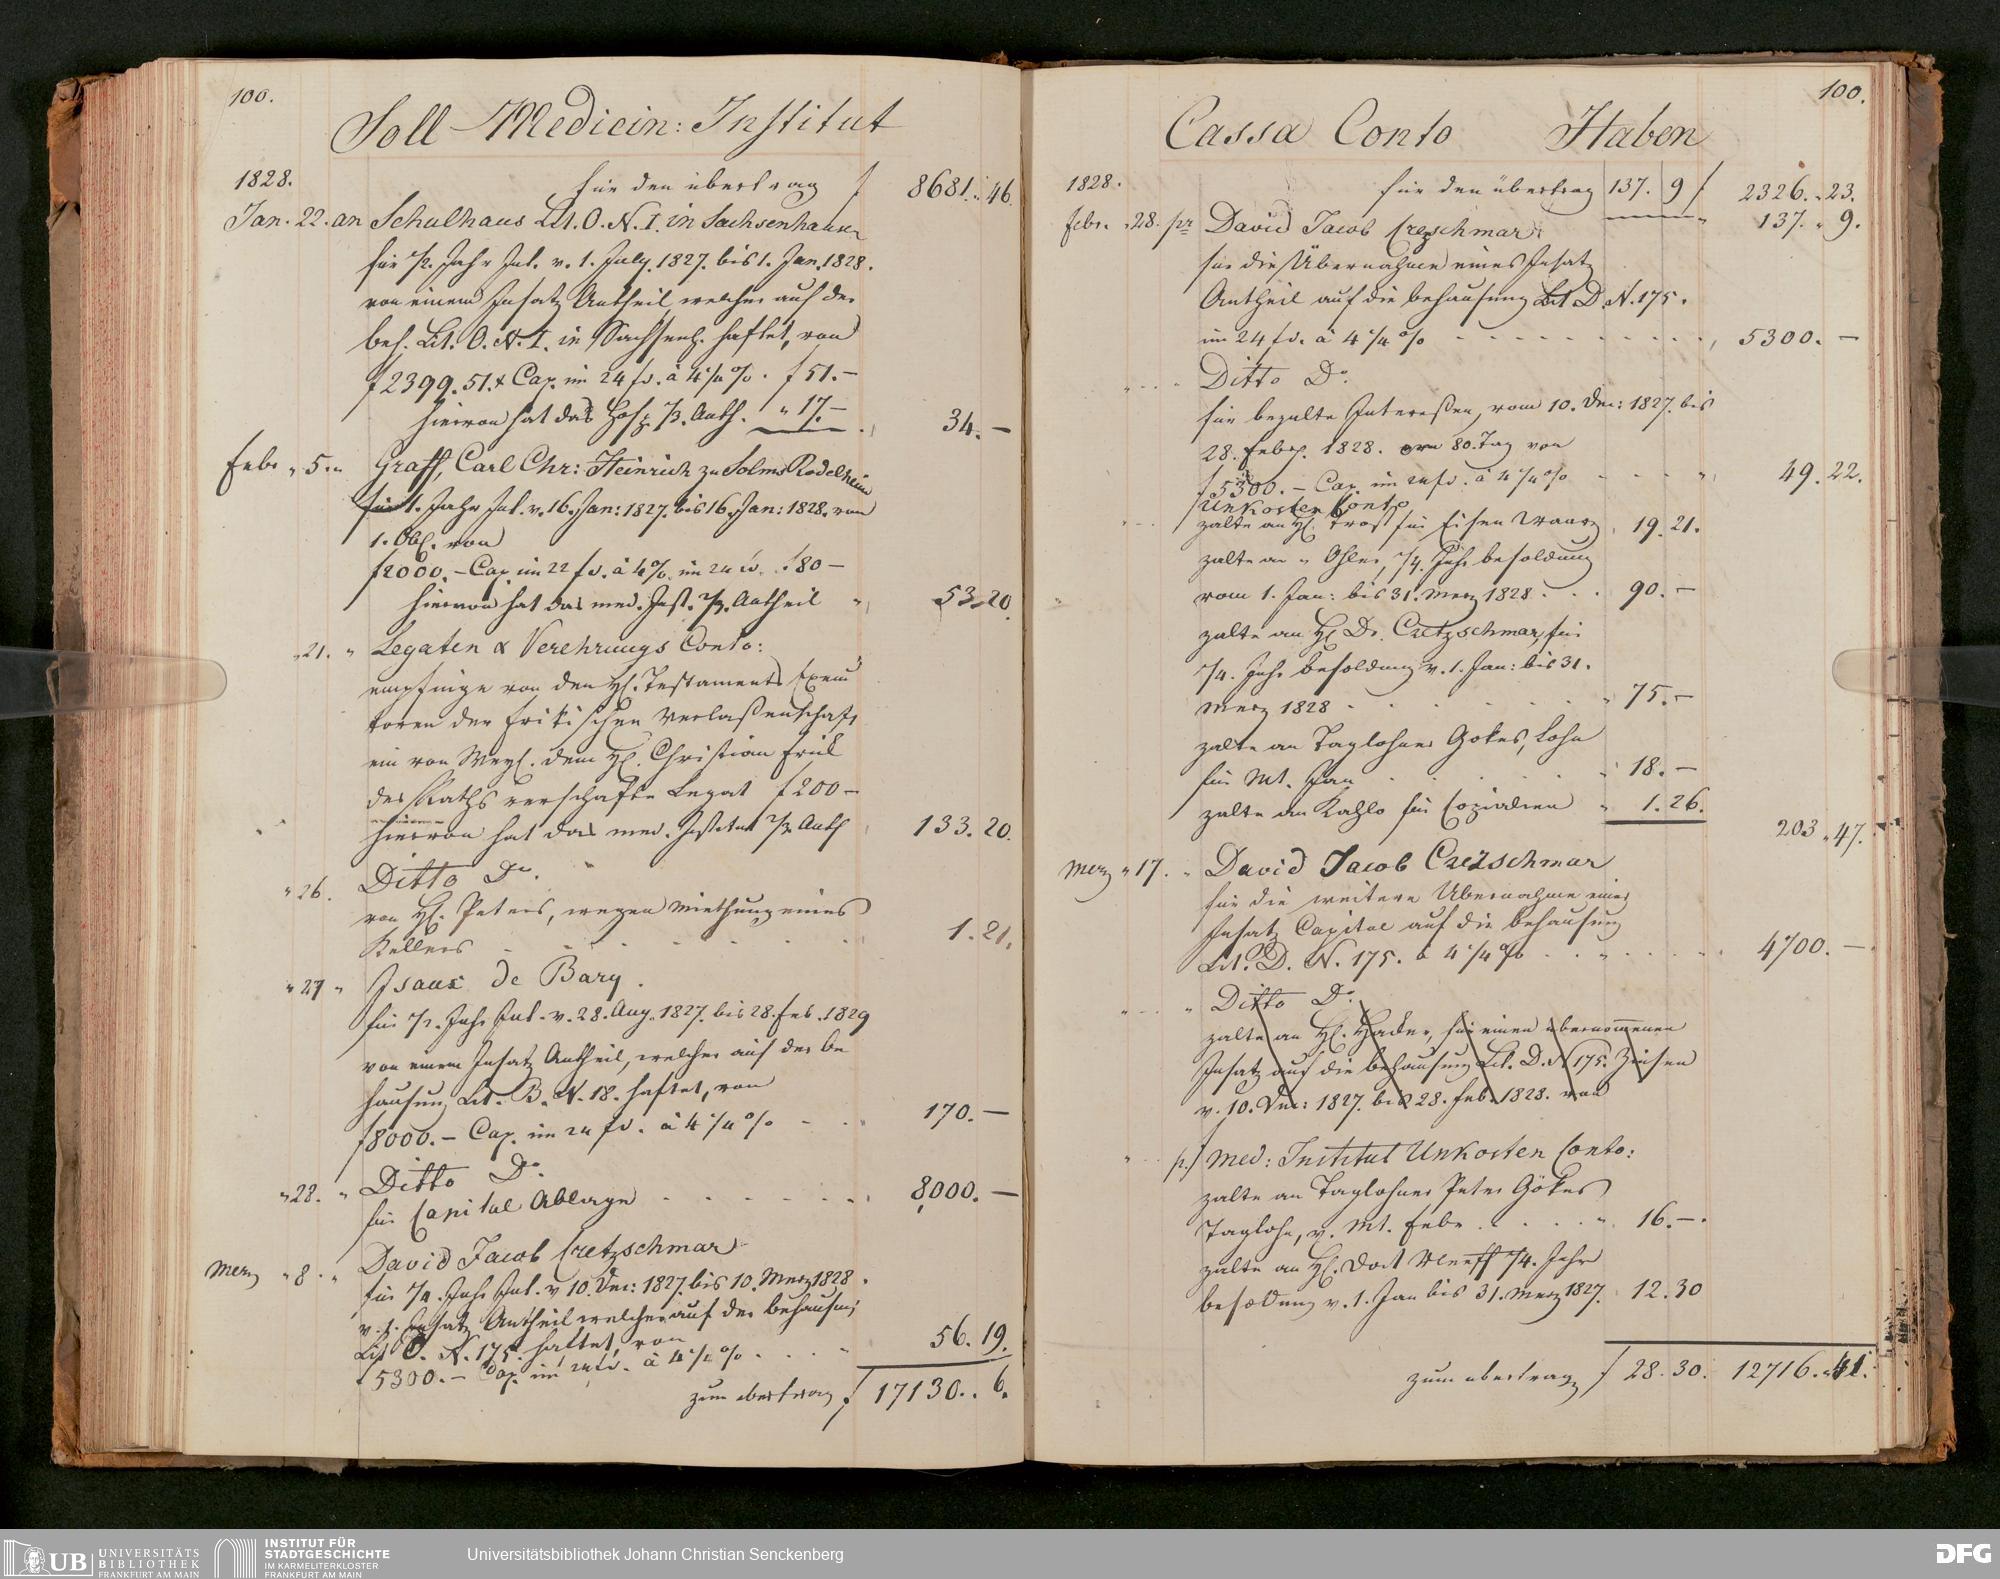 100.
Soll Medicin: Institut
1828.
für den übertrag f 8681. 46.
Jan. 22. an Schulhaus Lit. O. N. I. in Sachsenhausen
für 1/2. Jahr Int. v. 1. July. 1827. bis 1. Jan. 1828.
von einem Insatz Antheil, welcher auf der
beh. Lit. O. N. I. in Sachsenh. haftet, von
f 2399. 51. x Cap. im 24 fl. à 4 1/4 % . f 51. —
hievon hat das Hosp. 1/3. Anth. " 17. — 34. —
Febr " 5. " Graff, Carl Chr: Heinrich zu Solms Rodelheim
für 1. Jahr Int. v. 16. Jan: 1827. bis 16. Jan: 1828. von
1. Obl. von
f 2000. — Cap. im 22 fl. à 4 %. im 24 fl. f 80 —
hievon hat das med. Inst. 2/3. Antheil " 53. 20.
" 21. " Legaten & Verehrungs Conto:
empfinge von den H. Testaments Execu
toren der Frikischen Verlaßenschaft
ein von Weyl. dem H. Christian Frick
des Raths verschafte Legat f 200 —
hievon hat das med. Institut 2/3. Anth 133. 20.
" 26. Ditto Do.
von H. Peters, wegen Miethung eines
Kellers 1. 21.
" 27 " Isaac de Bary.
für 1/2. Jahr Int. v. 28. Aug. 1827. bis 28. Feb. 1829
von einem Insatz Antheil, welcher auf der be
hausung Lit. B. N. 18. haftet, von
f 8000. — Cap. im 24 fl. à 4 1/4 % 170. —
" 28. " Ditto Do.
für Capital Ablage 8000. —
Merz " 8. " David Jacob Cretzschmar
für 1/4. Jahr Int. v 10 Dec: 1827. bis 10. Merz 1828.
v. 1. Insatz Antheil welcher auf der behausung
Lit D. N. 175. haftet, von
f 5300. — Cap. im 24 fl. à 4 1/4 % 56. 19.
zum übertrag f 17130. 6.
100.
Cassa Conto Haben
1828.
für den übertrag 137. 9 f 2326. 23.
Febr. " 28. pr David Jacob Cretzschmar " 137. " 9.
für die Übernahme eines Insatz
Antheil auf die behausung Lit D. N. 175.
im 24 fl. à 4 1/4 % 5300. —
" " Ditto Do.
für bezalte Intereßen, vom 10. Dec: 1827. bis
28. Febr. 1828. 80. Tag von
f 5300. — Cap. im 24 fl. à 4 1/4 % 49. 22.
" Unkosten Conto
zalte an H. Trost für Eisen Waare 19. 21.
zalte an " Ohler, 1/4. Jahr besoldung
vom 1. Jan: bis 31. Merz 1828 90. —
zalte an H. Dr. Cretzschmar, für
1/4. Jahr besoldung v. 1. Jan: bis 31.
Merz 1828 " 75. —
zalte an Taglohner Gokes, Lohn
für Mt. Jan " 18. —
zalte an Kahlo für Copialien " 1. 26.
203 " 47.
Merz " 17. " David Jacob Cretzschmar
für die weitere Übernahme eines
Insatz Capital auf die behausung
Lit. D. N. 175. à 4 1/4 % 4700. —
" " Ditto Do.
zalte an H. Hader, für einen übernommenen
Insatz auf die behausung Lit. D. N 175. Zinsen
v. 10. Dec: 1827. bis 28. Feb. 1828. von
" p. Med: Institut Unkosten Conto:
zalte an Taglohner Peter Gökes
Taglohn, v. Mt. Febr " 16. —.
zalte an H. Doct Neeff 1/4. Jahr
besoldung v. 1. Jan bis 31. Merz 1827. 12. 30
zum übertrag f 28. 30. 12716. 41.
UB UNIVERSITÄTS
BIBLIOTHEK
FRANKFURT AM MAIN
INSTITUT FÜR
STADTGESCHICHTE
IM KARMELITERKLOSTER
FRANKFURT AM MAIN
Universitätsbibliothek Johann Christian Senckenberg
DFG